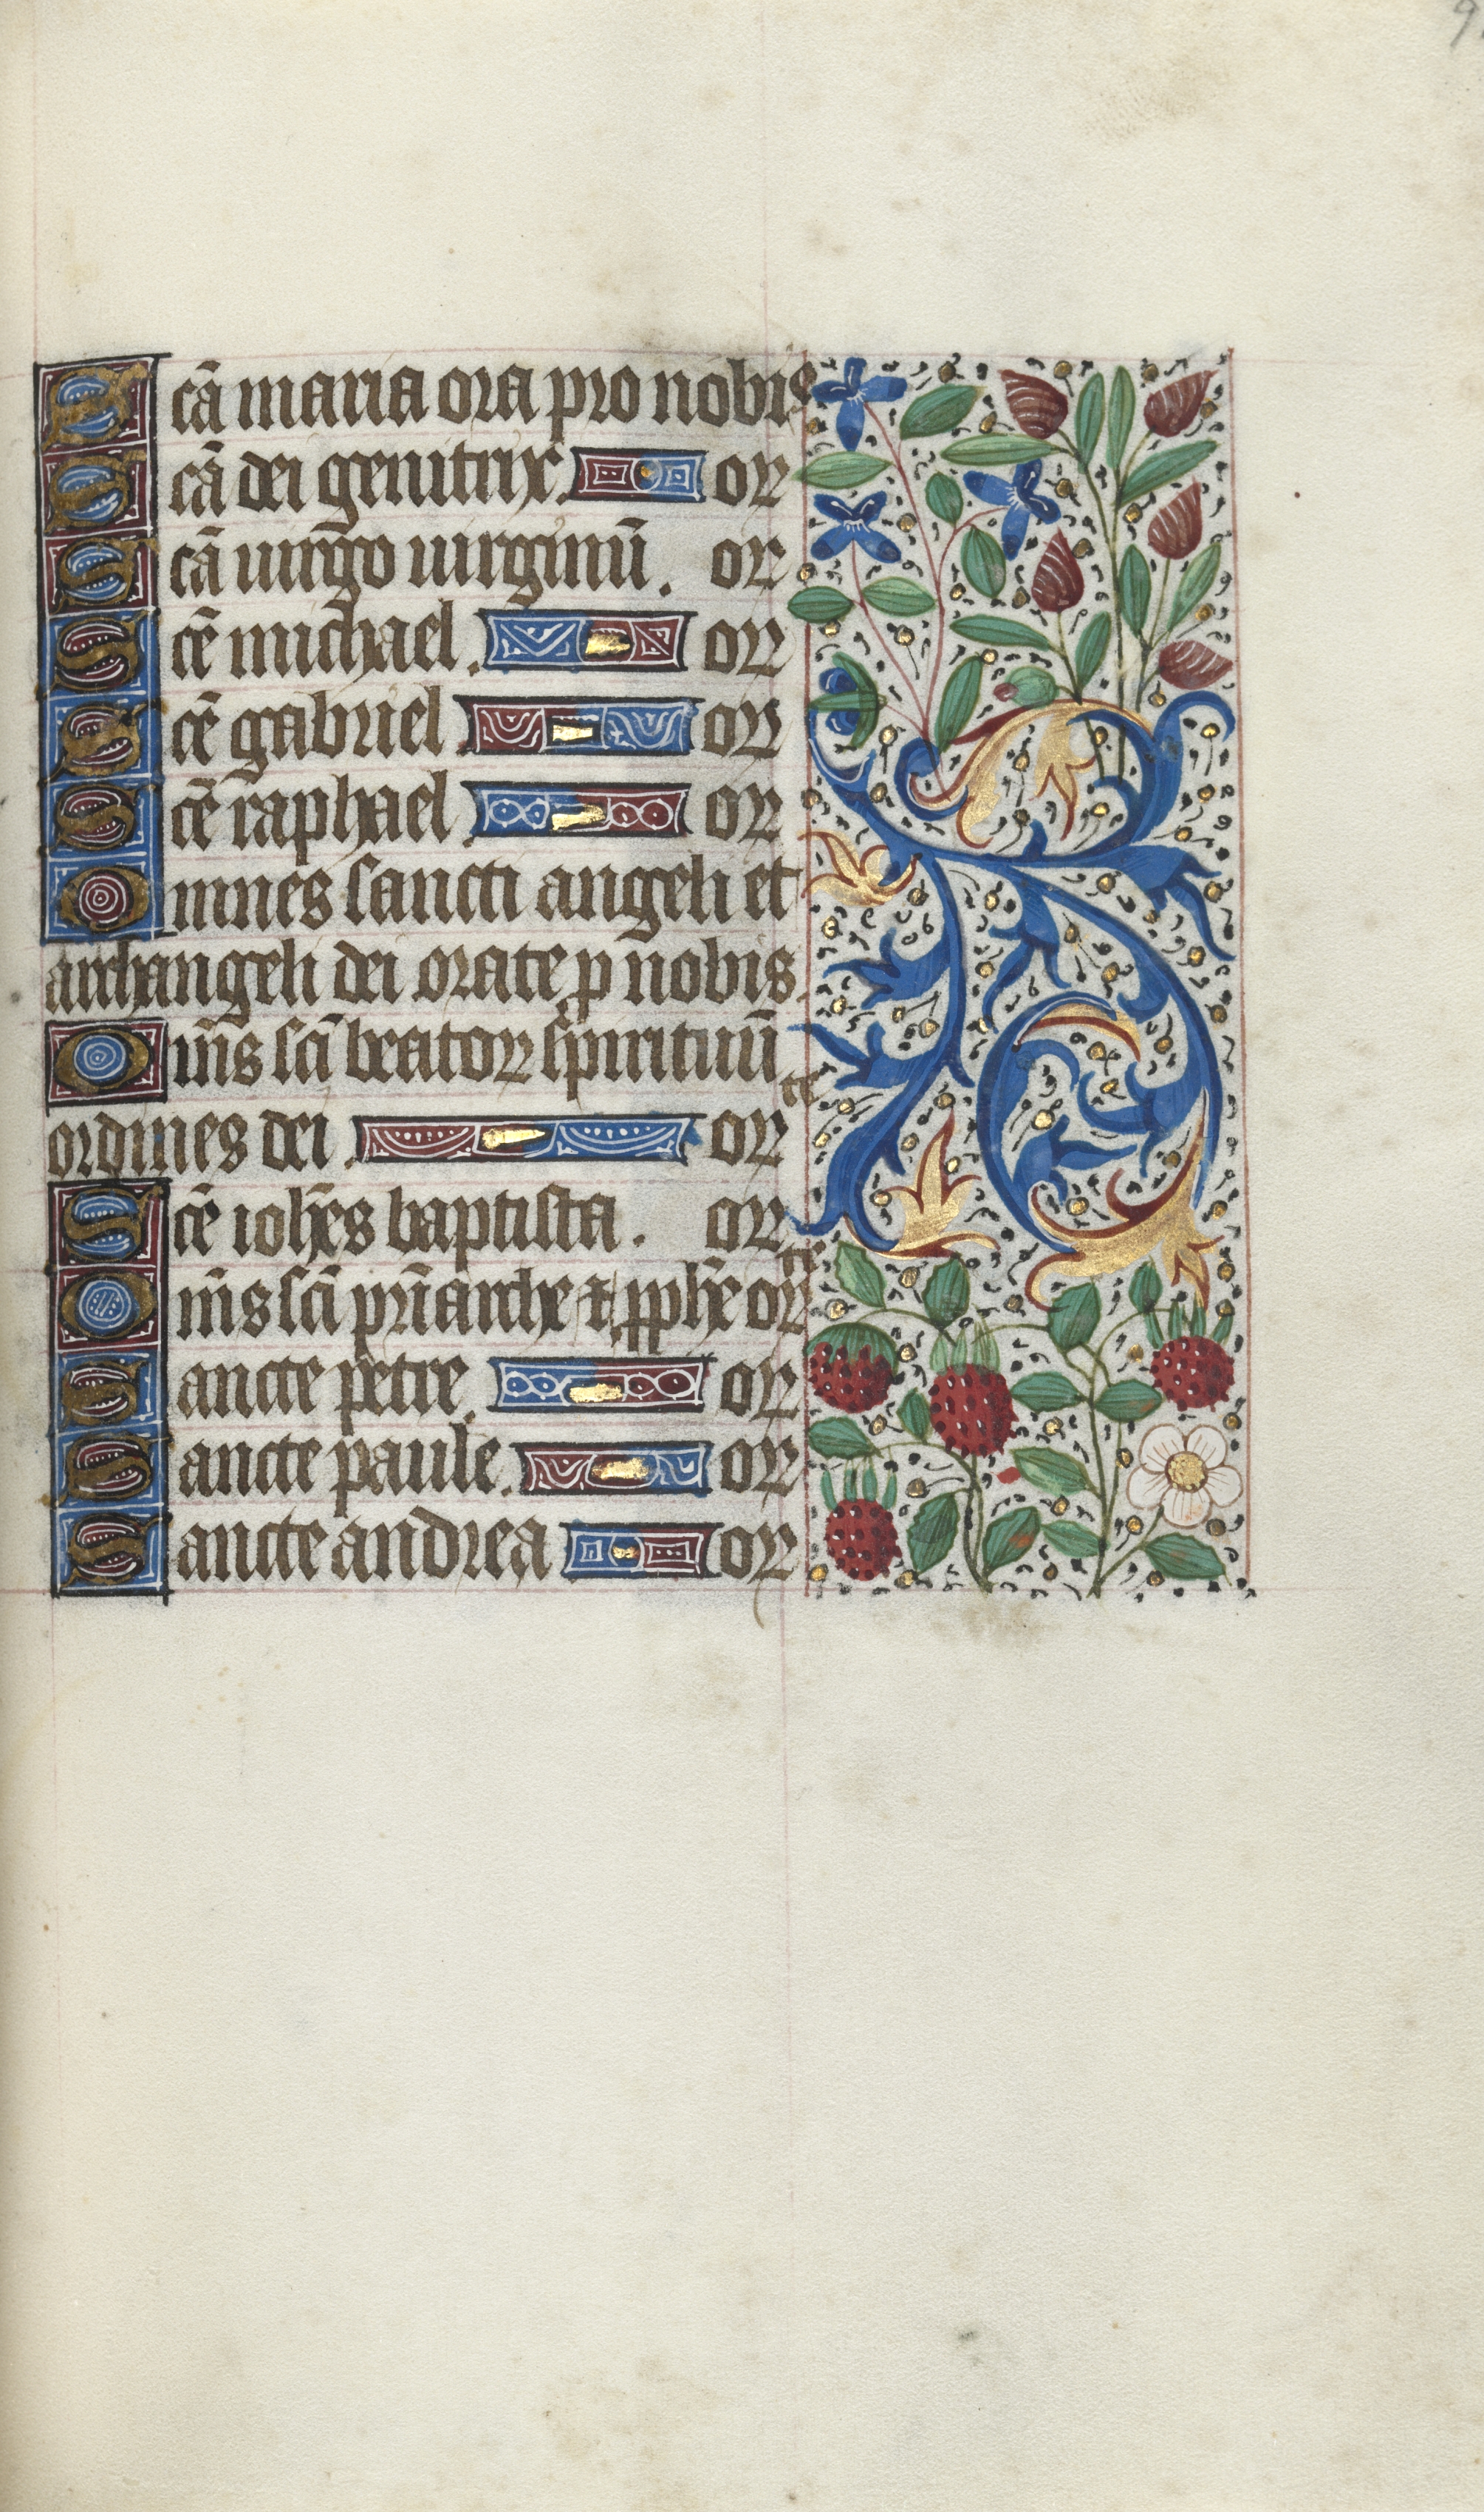 9
Scā maria ora pro nobis
Scā dei genitrix. or
Scā uirgo uirginū. or
Scē michael. or
Scē gabriel or
Scē raphael. or
Omnes sancti angeli et
archangeli dei orate p nobis.
Om̄s sci beatoꝝ spirituū
ordines dei. orate
Scē ioh̄es baptista. or
Om̄s sci pr̄iarche ⁊ pph̄e orate
Sancte petre. or
Sancte paule. or
Sancte andrea or